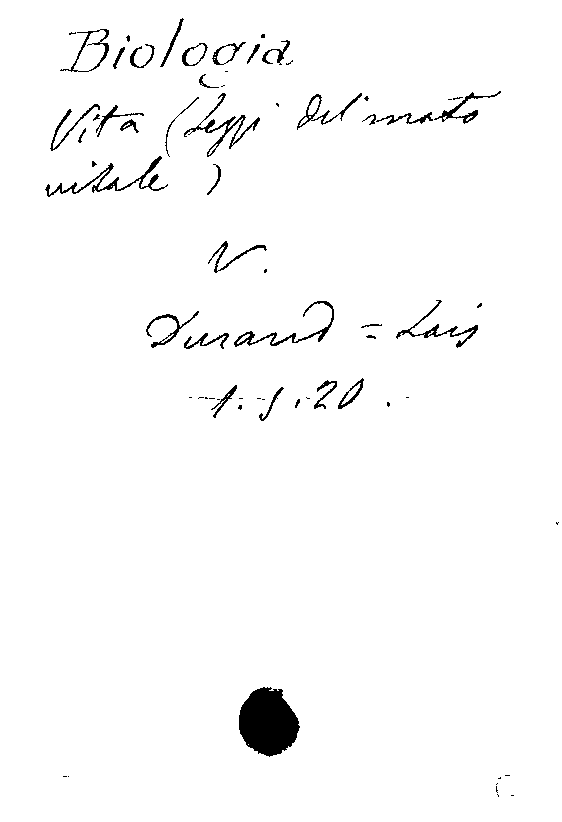 Biologia
Vita (Leggi del moto
vitale)
V.
Durand = Lais
1.5.20.